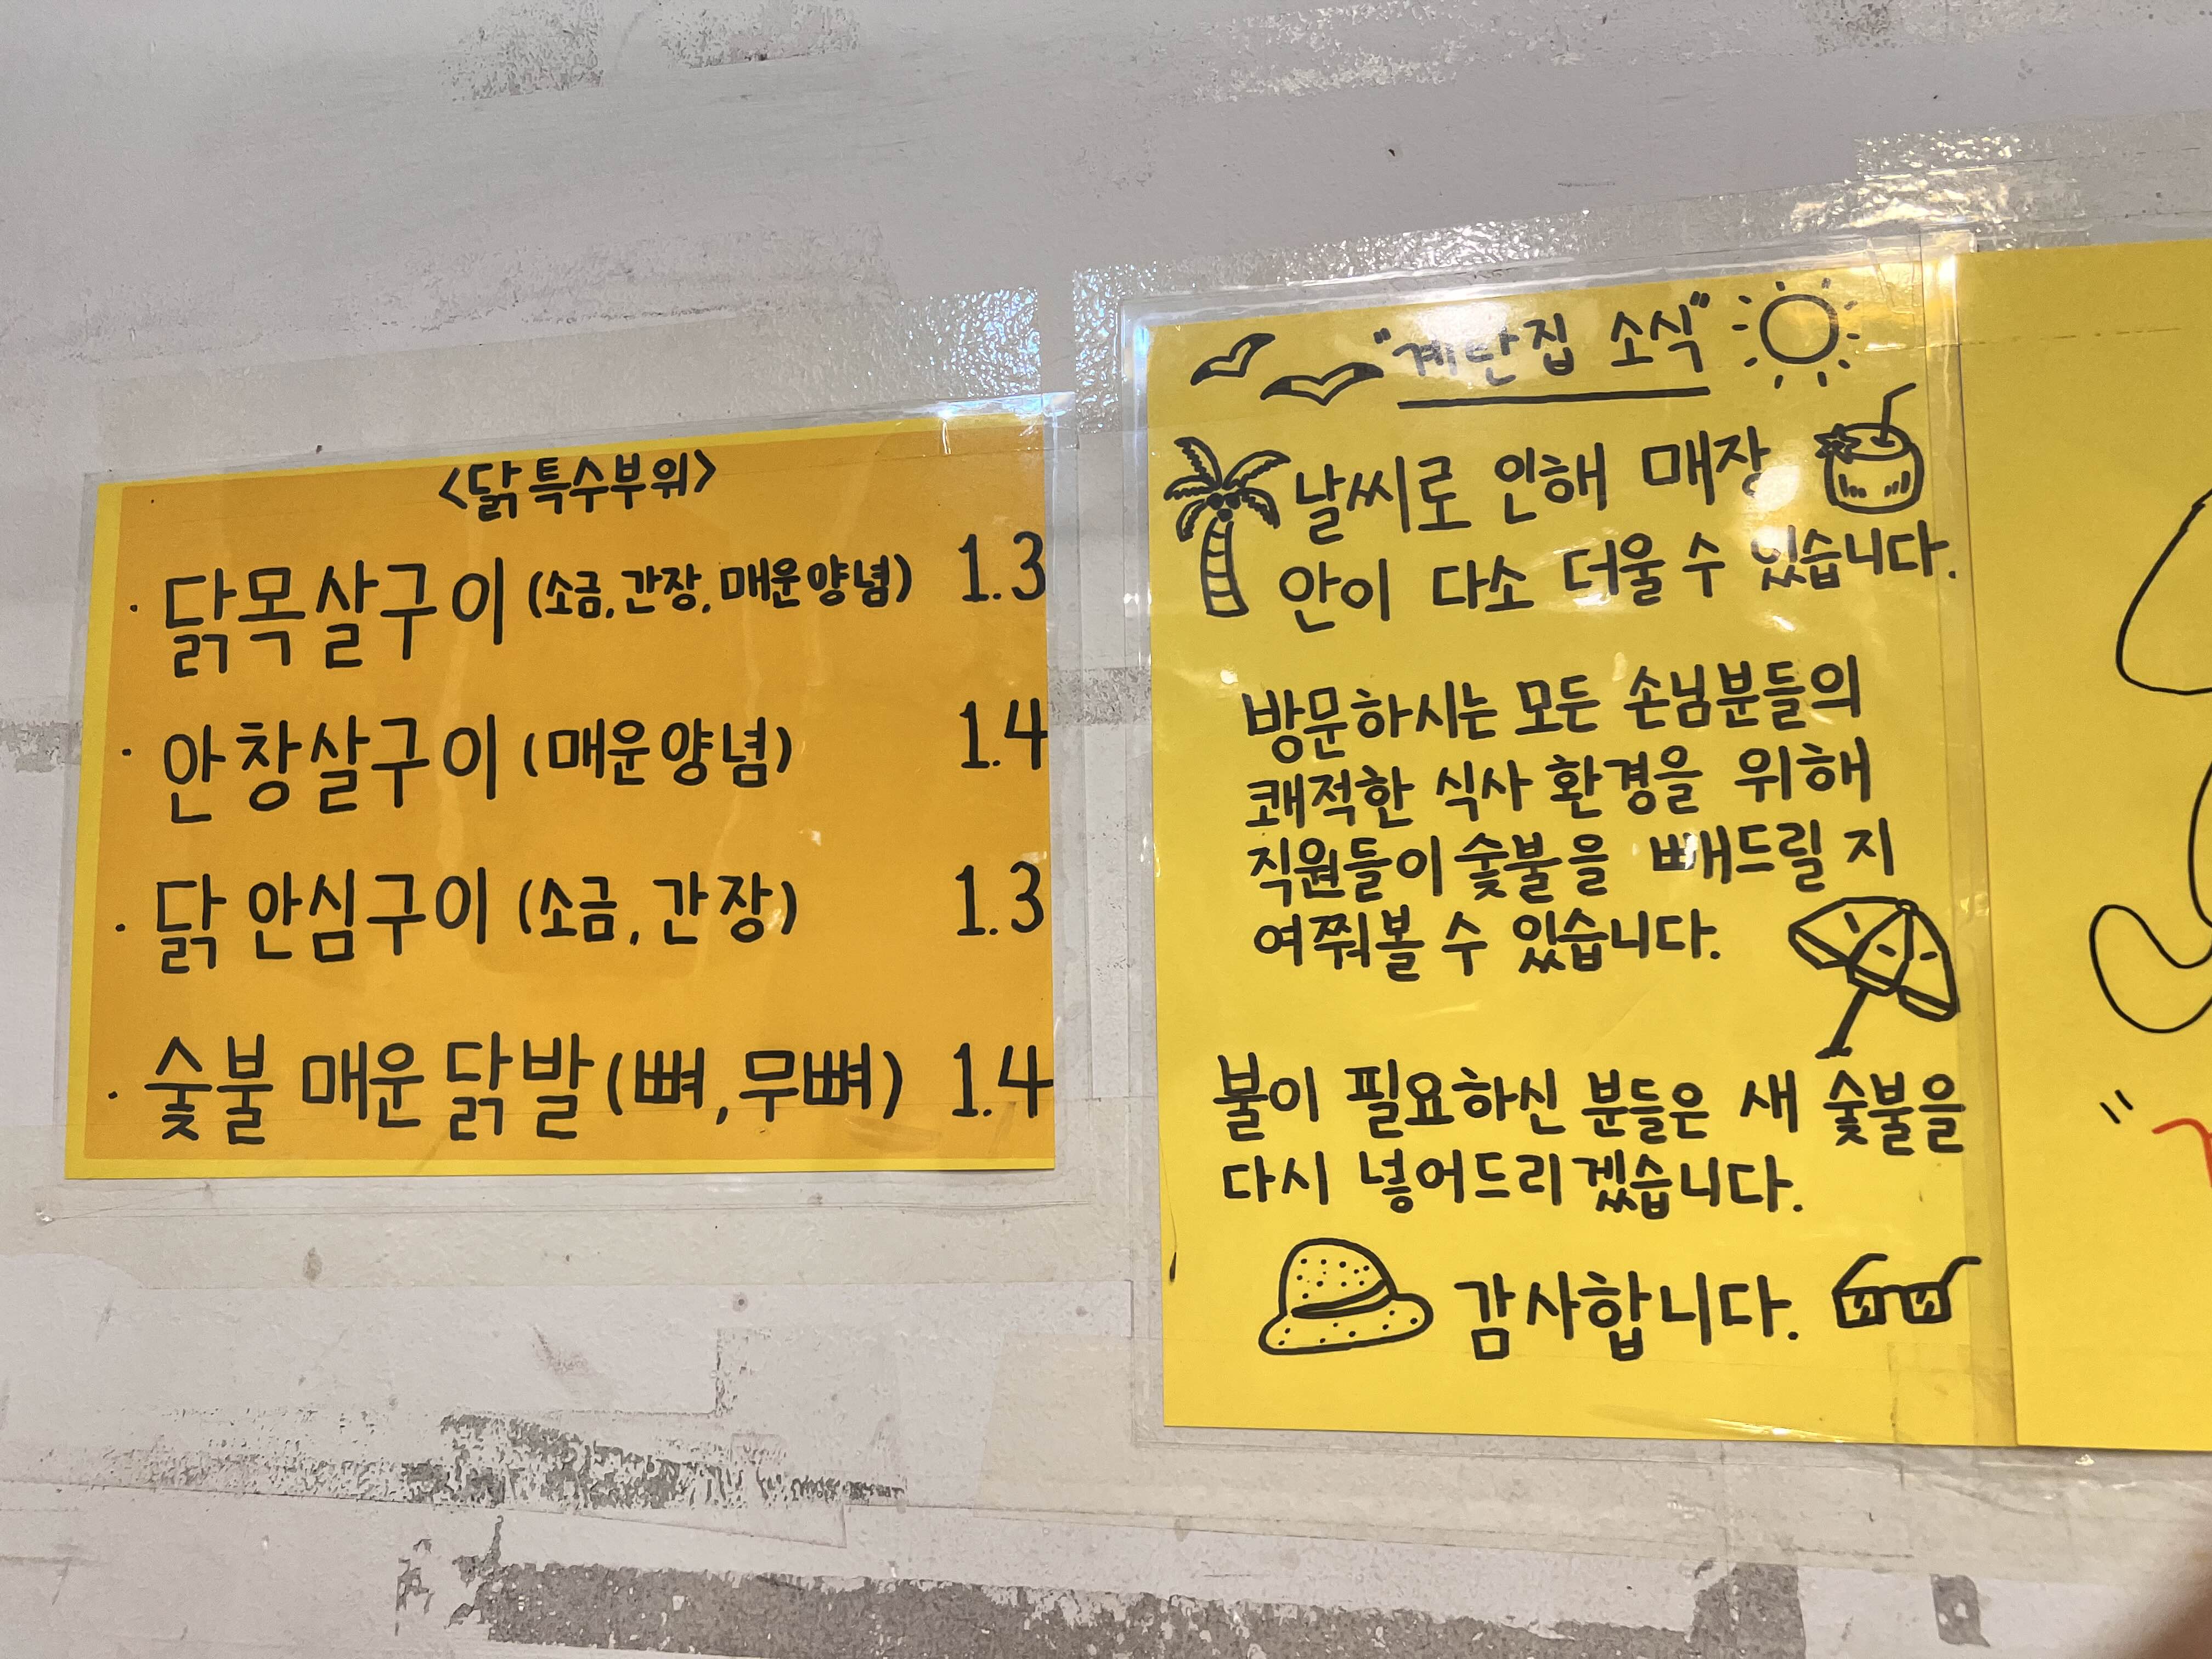 <닭특수부위>
· 닭목살구이 (소금, 간장, 매운양념) 1.3
· 안창살구이 (매운양념) 1.4
· 닭 안심구이 (소금, 간장) 1.3
· 숯불 매운 닭발 (뼈, 무뼈) 1.4
"계탄집 소식"
날씨로 인해 매장
안이 다소 더울 수 있습니다.
방문하시는 모든 손님분들의
쾌적한 식사 환경을 위해
직원들이 숯불을 빼드릴 지
여쭤볼 수 있습니다.
불이 필요하신 분들은 새 숯불을
다시 넣어드리겠습니다.
감사합니다.